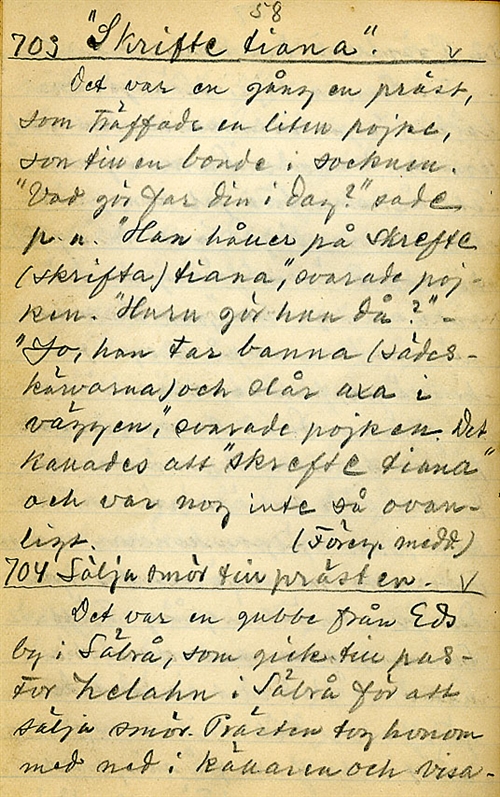 58
703 "Skrifte tiana". v
Det var en gång en präst,
som träffade en liten pojke,
son till en bonde i socknen.
"Vad gör far din i dag?" sade
p.n. "Han håller på skrefte
(skrifta) tiana", svarade poj-
ken. "Huru gör han då?" -
"Jo, han tar banna (sädes-
kärvarna) och slår axa i
väggen," svarade pojken. Det
kallades att "skrefte tiana"
och var nog inte så ovan-
ligt. (Föreg. medd.)
704 Sälja smör till prästen. v
Det var en gubbe från Eds
by i Säbrå, som gick till pas-
tor Zelahn i Säbrå för att
sälja smör. Prästen tog honom
med ned i källaren och visa-